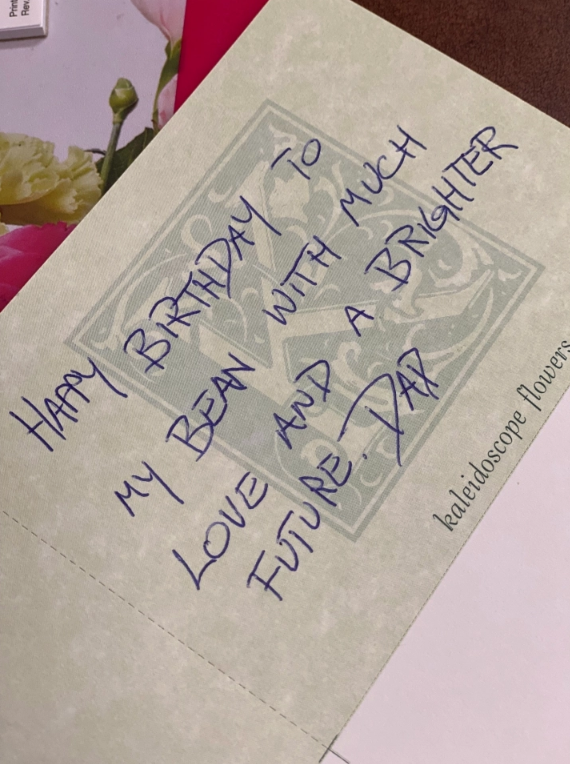 Print
Rev.
HAPPY BIRTHDAY TO
MY BEAN WITH MUCH
LOVE AND A BRIGHTER
FUTURE. DAD
K
kaleidoscope flowers